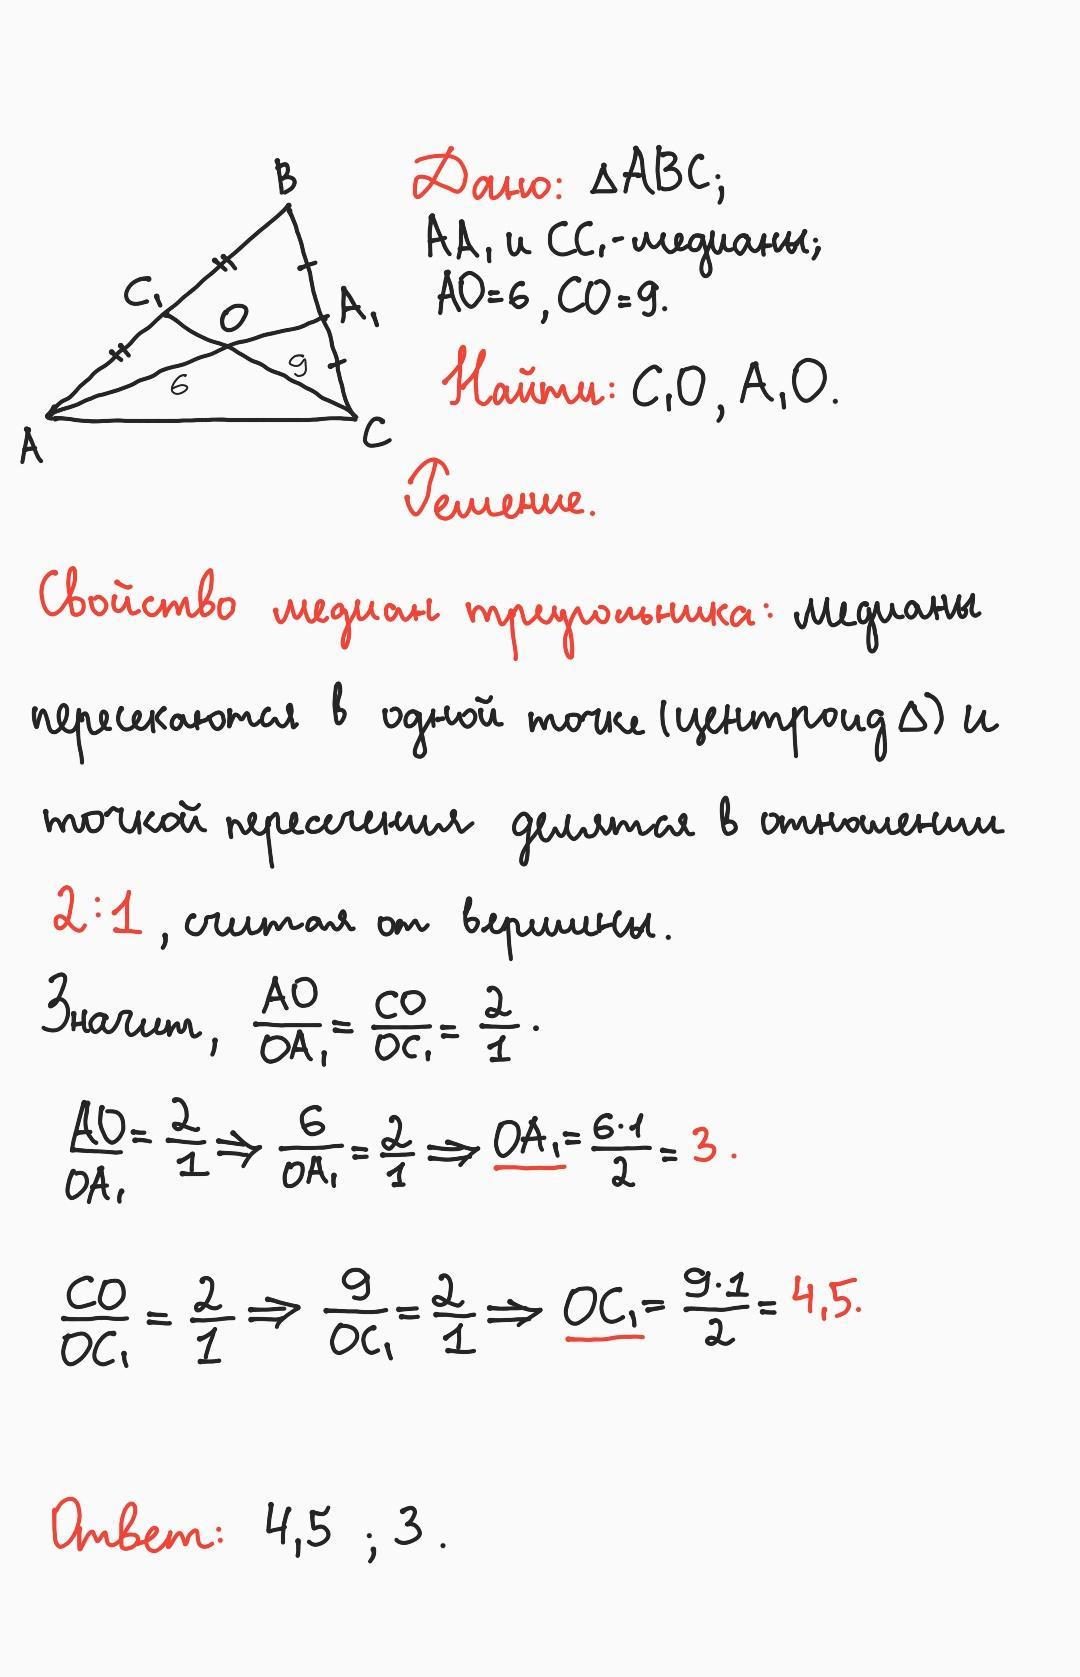 B
C₁
O
A₁
6
9
A
C
Дано: ΔABC;
AA₁ и CC₁ - медианы;
AO=6, CO=9.
Найти: C₁O, A₁O.
Решение.
Свойство медиан треугольника: медианы
пересекаются в одной точке (центроид Δ) и
точкой пересечения делятся в отношении
2:1, считая от вершины.
Значит, AO/OA₁ = CO/OC₁ = 2/1.
AO/OA₁ = 2/1 ⇒ 6/OA₁ = 2/1 ⇒ OA₁ = 6·1/2 = 3.
CO/OC₁ = 2/1 ⇒ 9/OC₁ = 2/1 ⇒ OC₁ = 9·1/2 = 4,5.
Ответ: 4,5 ; 3.